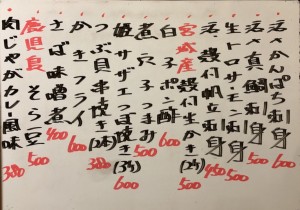 活〆かんぱち刺身
活〆真鯛刺身
生トロサーモン刺身
活〆幾付帆立刺身 500
宮城産 殻付生かき(2ケ) 450
白子ポン酢 500
煮穴子つまみ 600
姫サザエつぼ焼き(3ケ) 600
つぶ貝串焼き(2本) 380
かきフライ 600
さば味噌煮 400
鹿児島 そら豆 500
肉じゃがカレー風味 380